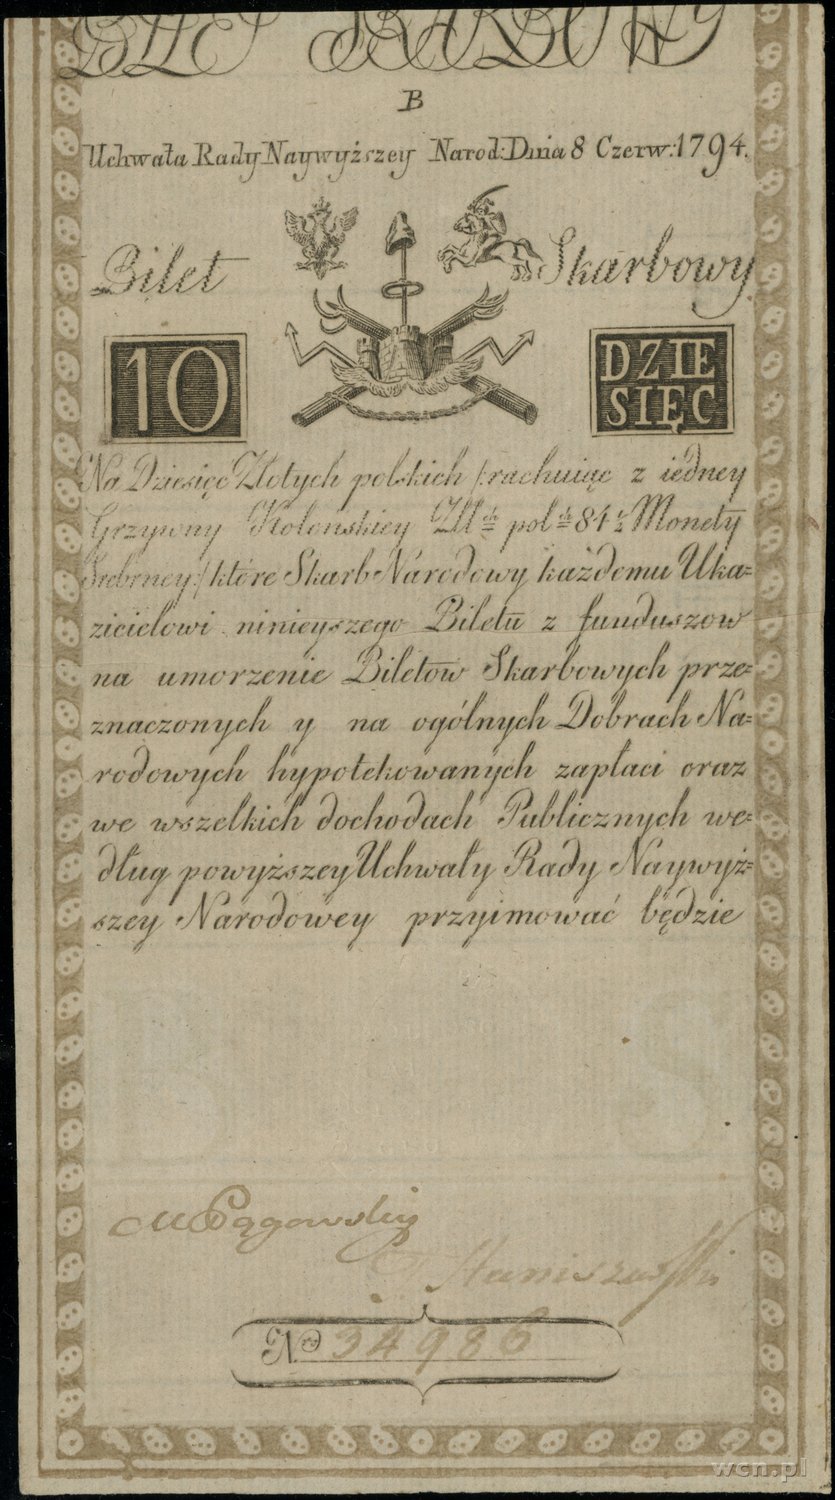 BILET SKARBOWY
B
Uchwała Rady Naywyższey Narod: Dnia 8 Czerw: 1794.
Bilet Skarbowy
10
DZIE
SIĘC
Na Dziesięc Złotych polskich /: rachuiąc z iedney
Grzywny Kolonskiey Zll: ch pol: ch 84 ½ Monety
Srebrney :/ które Skarb Narodowy każdemu Uka=
zicielowi ninieyszego Biletu z funduszow
na umorzenie Biletow Skarbowych prze=
znaczonych y na ogólnych Dobrach Na=
rodowych hypotekowanych zapłaci oraz
we wszelkich dochodach Publicznych we=
dług powyższey Uchwały Rady Naywyż=
szey Narodowey przyimować będzie
M Pągowski
Staniszewski
No 34986
wcn.pl